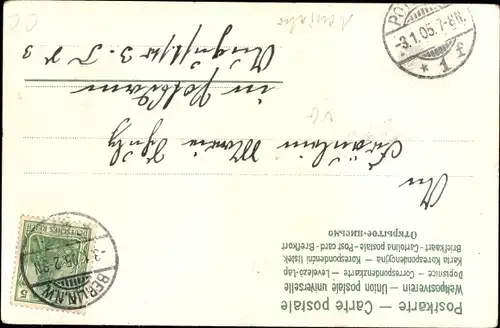 Postkarte — Carte postale
Weltpostverein - Union postale universelle
Dopisnice - Correspondenzkarte - Levelező-Lap
Karta korespondencyjna - Korespondenční lístek
Briefkaart - Cartolina postale - Post card - Brefkort
Открытое письмо
An
Fräulein Maria
in Potsdam
3
Neujahr
3.1.05.7-8N.
* 1 f
DEUTSCHES REICH
5
BERLIN.N.W.